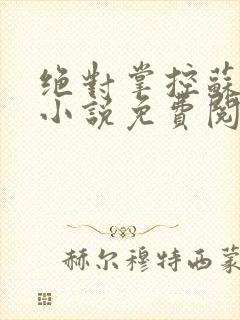 绝對掌控蘇
小説免費閱
赫尔穆特西蒙